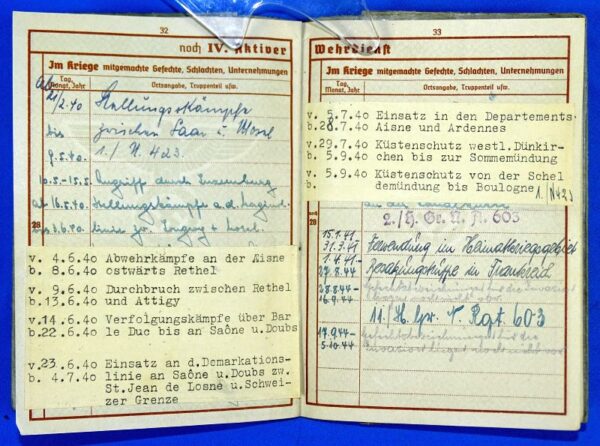 32
noch IV. Aktiver
Im Kriege mitgemachte Gefechte, Schlachten, Unternehmungen
Tag, Monat, Jahr
Ortsangabe, Truppenteil usw.
ab
21/2.40 Stellungskämpfe
bis zwischen Saar u. Mosel
9.5.40 1./N. 423.
10.5.-15.5. Angriff durch Luxemburg
ab 16.5.40 Stellungskämpfe a.d.
28
bis 3.6.40
v. 4.6.40 Abwehrkämpfe an der Aisne
b. 8.6.40 ostwärts Rethel
v. 9.6.40 Durchbruch zwischen Rethel
b.13.6.40 und Attigy
v.14.6.40 Verfolgungskämpfe über Bar
b.22.6.40 le Duc bis an Saône u.Doubs
v.23.6.40 Einsatz an d.Demarkations-
b. 4.7.40 linie an Saône u.Doubs zw.
St.Jean de Losne u.Schwei-
zer Grenze
33
Wehrdienst
Im Kriege mitgemachte Gefechte, Schlachten, Unternehmungen
Tag, Monat, Jahr
Ortsangabe, Truppenteil usw.
v. 5.7.40 Einsatz in den Departements
b.28.7.40 Aisne und Ardennes
v.29.7.40 Küstenschutz westl.Dünkir-
b. 5.9.40 chen bis zur Sommemündung
v. 5.9.40 Küstenschutz von der Schel
b. demündung bis Boulogne
1./N423
2./H. Gr. N. R. 603
15.1.41
31.3.41 Verwendung im Heimatkriegsgebiet
1.4.41-
27.8.44 Besatzungstruppe in Frankreich
28.8.44-
11./H. Gr. N. Rgt 603
17.9.44-
5.10.44